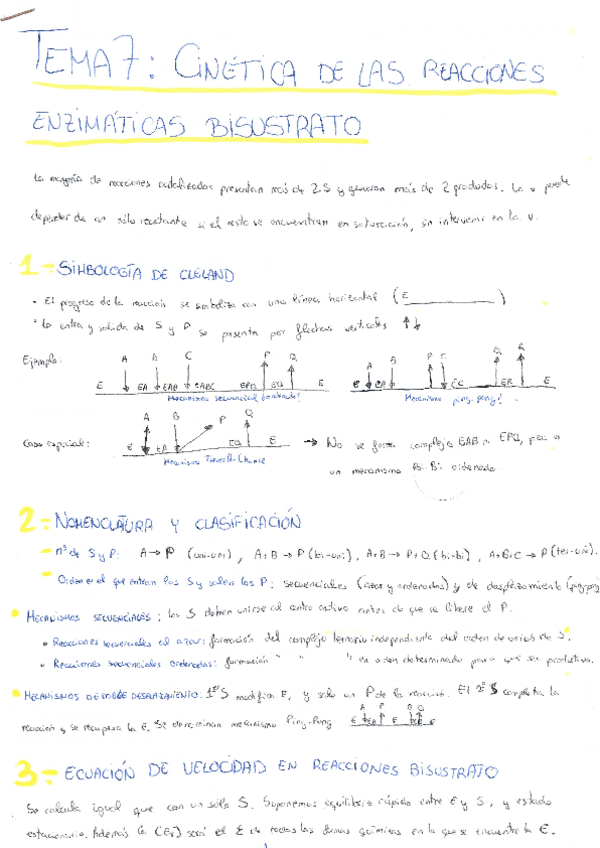 TEMA 7: CINÉTICA DE LAS REACCIONES
ENZIMÁTICAS BISUSTRATO
La mayoría de reacciones catalizadas presentan más de 2 S y generan más de 2 productos. La v puede
depender de un sólo reactante si el resto se encuentran en saturación, sin intervenir en la v.
1- SIMBOLOGÍA DE CLELAND
• El progreso de la reacción se simboliza con una línea horizontal (E ________ )
• La entra y salida de S y P se presenta por flechas verticales ↑↓
Ejemplo:
A B C P Q
E EA EAB EABC EPQ EQ E
Mecanismo secuencial ordenado!
A B P C Q R
E EA EC ER E
Mecanismo ping-pong!
Caso especial:
A B P Q
E EA EQ E
Mecanismo Theorell-Chance
→ No se forma complejo EAB o EPQ, pero
un mecanismo Bi Bi ordenado
2- NOMENCLATURA Y CLASIFICACIÓN
- nº de S y P: A → P (uni-uni), A+B → P (bi-uni), A+B → P+Q (bi-bi), A+B+C → P (ter-uni).
- Orden en el que entran los S y salen los P: secuenciales (azar y ordenados) y de desplazamiento (ping-pong)
• MECANISMOS SECUENCIALES: los S deben unirse al centro activo antes de que se libere el P.
• Reacciones secuenciales al azar: formación del complejo ternario independiente del orden de unión de S.
• Reacciones secuenciales ordenadas: formación " " " es orden determinado para que sea productiva.
• MECANISMOS DE DOBLE DESPLAZAMIENTO: 1er S modifica E, y sale un P de la reacción. El 2º S completa la
reacción y se recupera la E. Se denomina mecanismo Ping-Pong
A P B Q
E E
3- ECUACIÓN DE VELOCIDAD EN REACCIONES BISUSTRATO
Se calcula igual que con un sólo S. Suponemos equilibrio rápido entre E y S, y estado
estacionario. Además la (ET) será el Σ de todas las formas químicas en la que se encuentre la E.